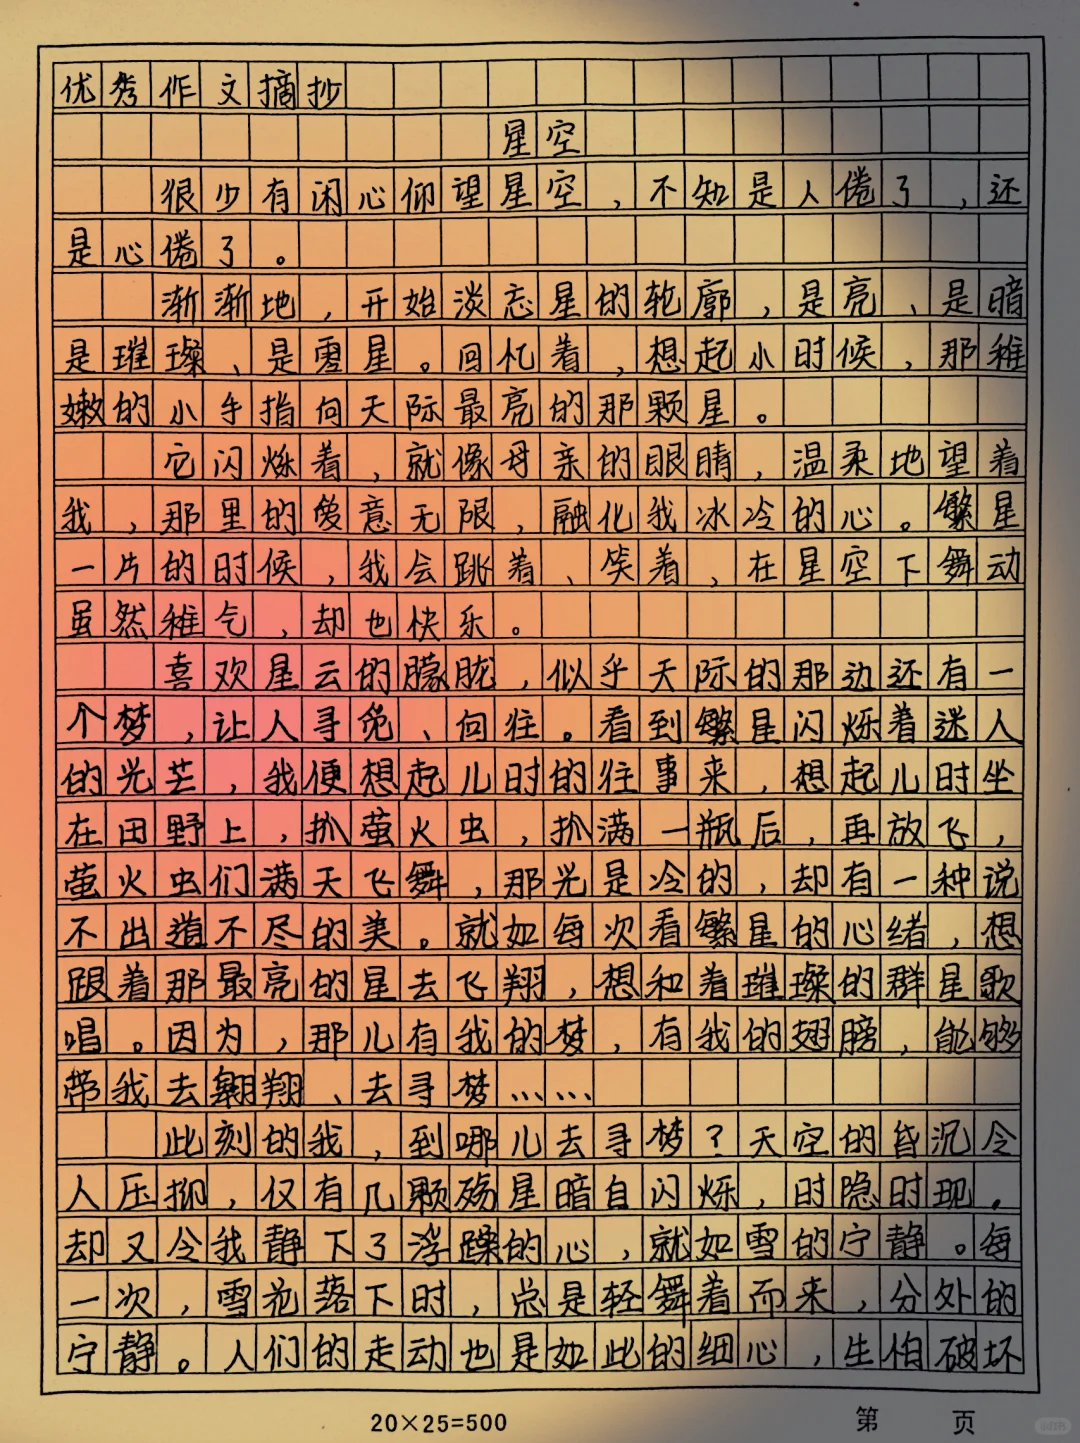 优秀作文摘抄
星空
很少有闲心仰望星空，不知是人倦了，还
是心倦了。
渐渐地，开始淡忘星的轮廓，是亮、是暗
是璀璨、是零星。回忆着，想起小时候，那稚
嫩的小手指向天际最亮的那颗星。
它闪烁着，就像母亲的眼睛，温柔地望着
我，那里的爱意无限，融化我冰冷的心。繁星
一片的时候，我会跳着、笑着，在星空下舞动
虽然稚气，却也快乐。
喜欢星云的朦胧，似乎天际的那边还有一
个梦，让人寻觅、向往。看到繁星闪烁着迷人
的光芒，我便想起儿时的往事来，想起儿时坐
在田野上，扒萤火虫，扒满一瓶后，再放飞，
萤火虫们满天飞舞，那光是冷的，却有一种说
不出道不尽的美。就如每次看繁星的心绪，想
跟着那最亮的星去飞翔，想和着璀璨的群星歌
唱。因为，那儿有我的梦，有我的翅膀，能够
带我去翱翔、去寻梦……
此刻的我，到哪儿去寻梦？天空的昏沉令
人压抑，仅有几颗残星暗自闪烁，时隐时现，
却又令我静下了浮躁的心，就如雪的宁静。每
一次，雪花落下时，总是轻舞着而来，分外的
宁静。人们的走动也是如此的细心，生怕破坏
20×25=500
第 页
小红书